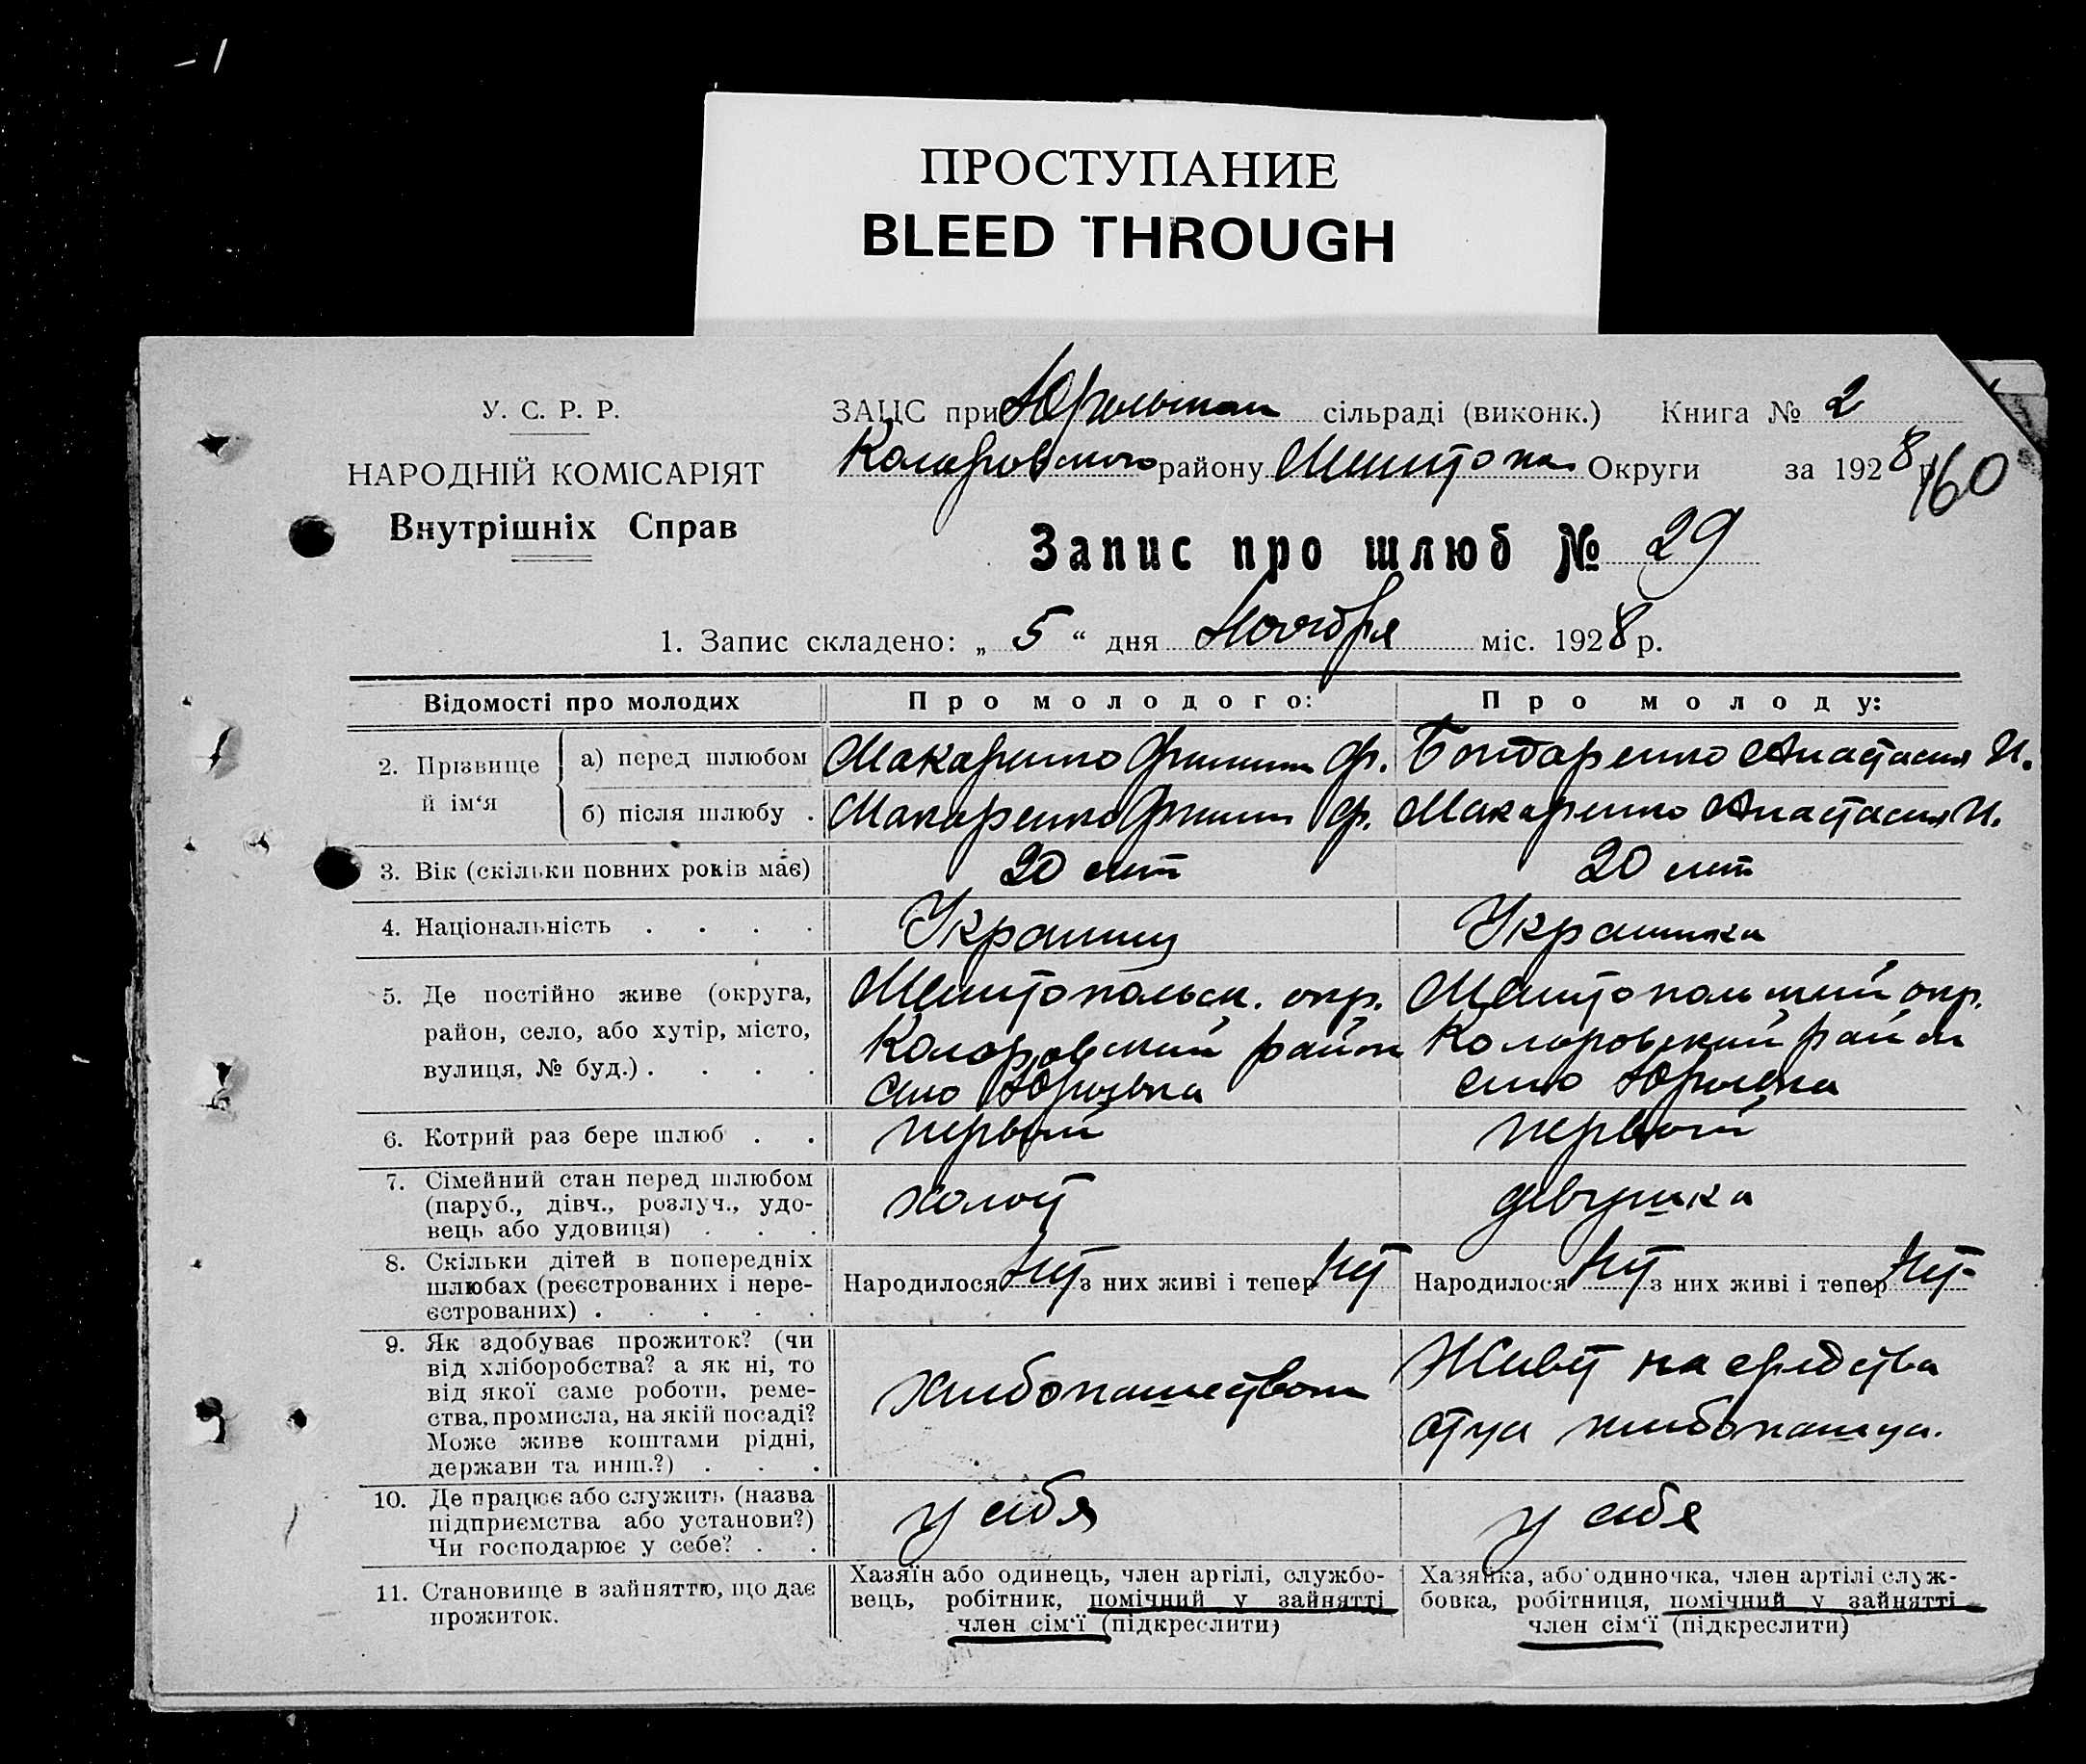 ПРОСТУПАНИЕ
BLEED THROUGH
У. С. Р. Р.
НАРОДНІЙ КОМІСАРІЯТ
Внутрішніх Справ
ЗАЦС при сільраді (виконк.) Книга № 2
Коларовского району Округи за 1928 р.
160
Запис про шлюб № 29
1. Запис складено: „ 5 “ дня Ноября міс. 1928 р.
Відомості про молодих
Про молодого:
Про молоду:
2. Прізвище й ім‘я
а) перед шлюбом
Макаренко Ф.
Бондаренко Анастасия И.
б) після шлюбу .
Макаренко Ф.
Макаренко Анастасия И.
3. Вік (скільки повних років має)
20 лет
20 лет
4. Національність . . . .
Украинец
Украинка
5. Де постійно живе (округа,
район, село, або хутір, місто,
вулиця, № буд.) . . . .
Мелитопольск. окр.
Коларовский район
село Юрьевка
Мелитопольский окр.
Коларовский район
село Юрьевка
6. Котрий раз бере шлюб . .
первый
первый
7. Сімейний стан перед шлюбом
(паруб., дівч., розлуч., удо-
вець або удовиця) . . .
холост
девушка
8. Скільки дітей в попередніх
шлюбах (реєстрованих і нере-
єстрованих) . . . . .
Народилося нет з них живі і тепер нет
Народилося нет з них живі і тепер нет
9. Як здобуває прожиток? (чи
від хліборобства? а як ні, то
від якої саме роботи, реме-
ства, промисла, на якій посаді?
Може живе коштами рідні,
держави та инш.?) . . .
хлебопашеством
Живет на средства
отца хлебопашца.
10. Де працює або служить (назва
підприємства або установи?)
Чи господарює у себе? . .
у себя
у себя
11. Становище в зайняттю, що дає
прожиток.
Хазяїн або одинець, член артілі, службо-
вець, робітник, помічний у зайнятті
член сім‘ї (підкреслити)
Хазяйка, або одиночка, член артілі служ-
бовка, робітниця, помічний у зайнятті
член сім‘ї (підкреслити)